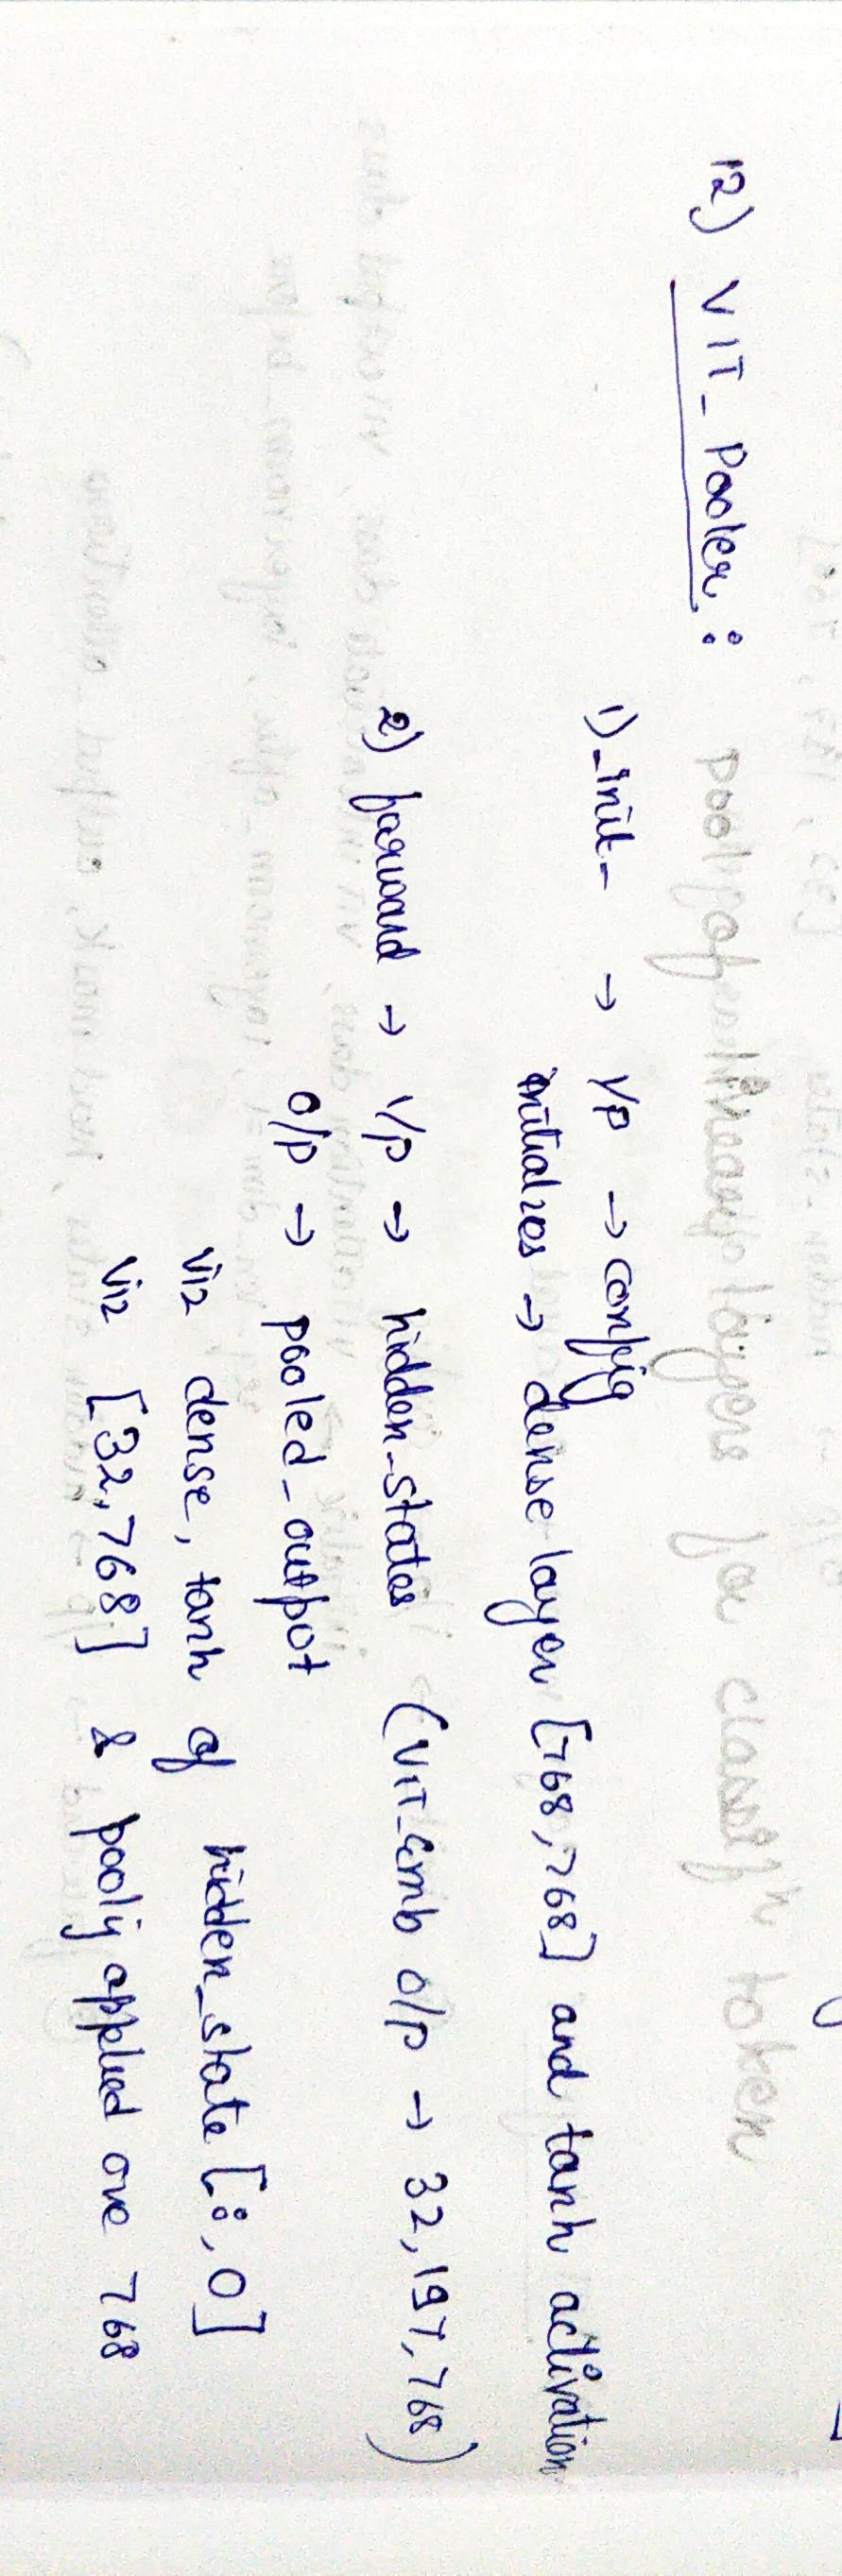 12) VIT_Pooler :
pooly of linear layers for classif^n token
1) _init_ → I/P → config
initializes → dense layer [768,768] and tanh activation
2) forward → I/P → hidden_states (VIT_Emb O/P → 32,197,768)
O/P → pooled_output
Viz dense, tanh of hidden_state [:,0]
Viz [32,768] & pooly applied ove 768